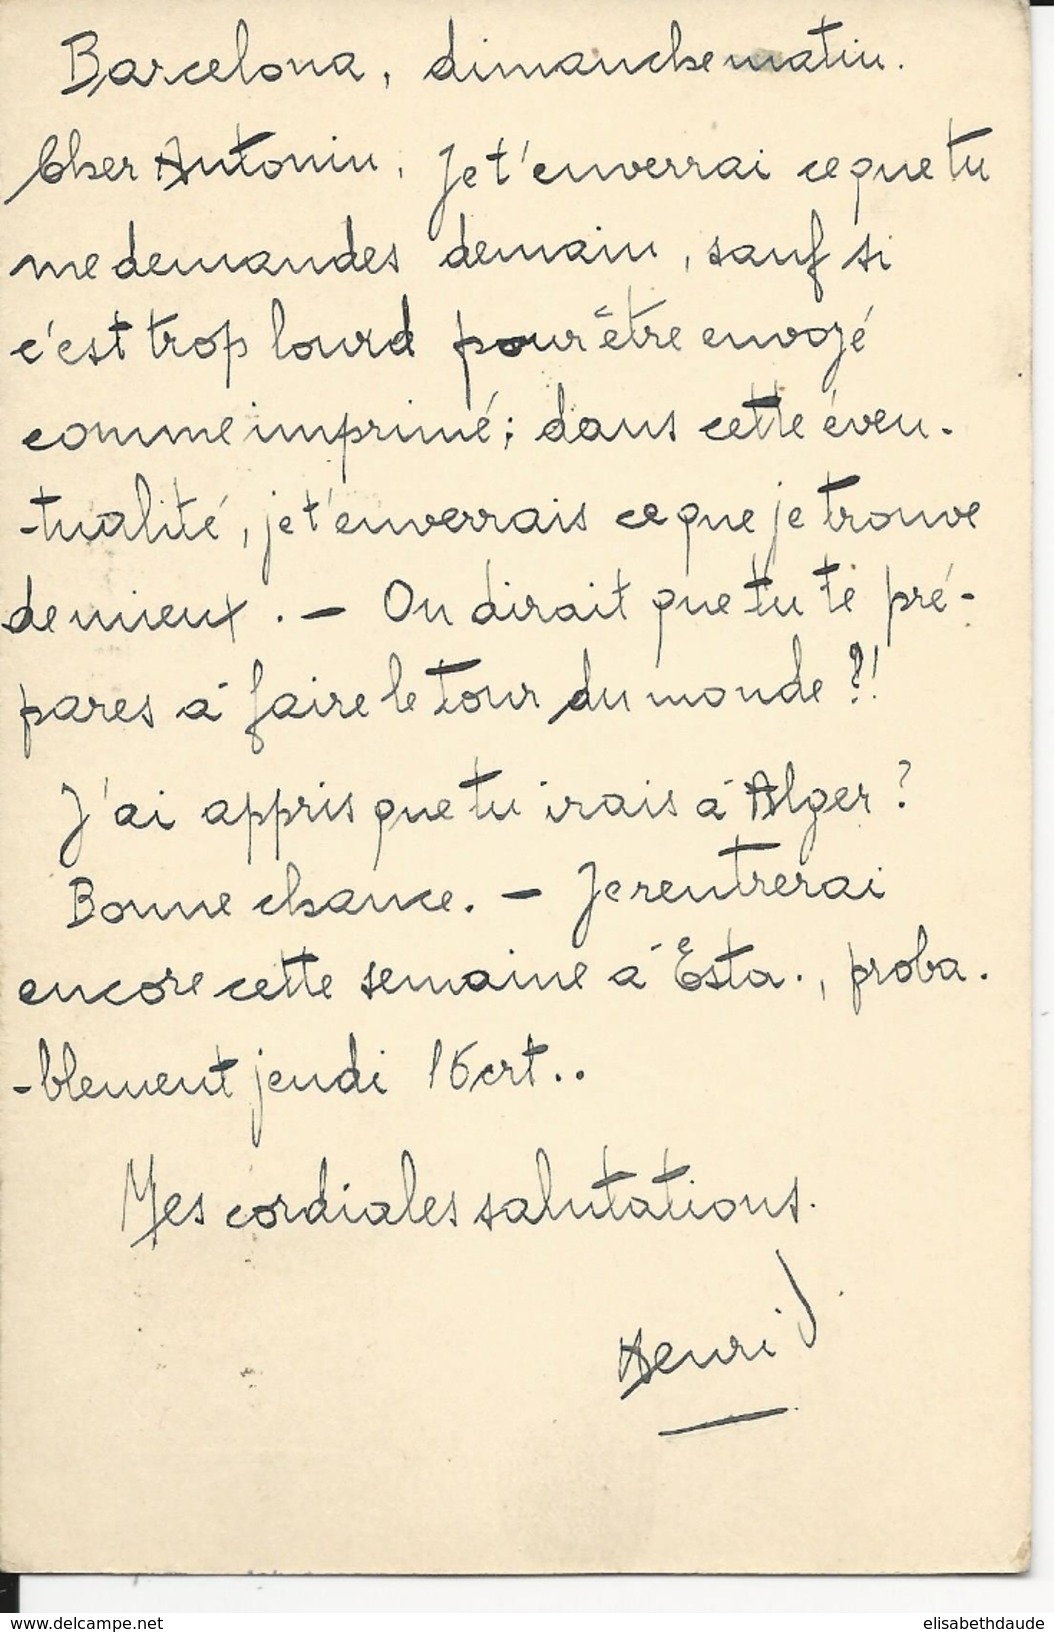 Barcelona, dimanche matin.
Cher Antonin, Je t'enverrai ce que tu
me demandes demain, sauf si
c'est trop lourd pour être envoyé
comme imprimé; dans cette éven-
-tualité, je t'enverrais ce que je trouve
de mieux. — On dirait que tu te pré-
pares à faire le tour du monde ?!
J'ai appris que tu irais à Alger ?
Bonne chance. — Je rentrerai
encore cette semaine à Esta., proba-
-blement jeudi 16 crt..
Mes cordiales salutations.
Henri
www.delcampe.net
elisabethdaude